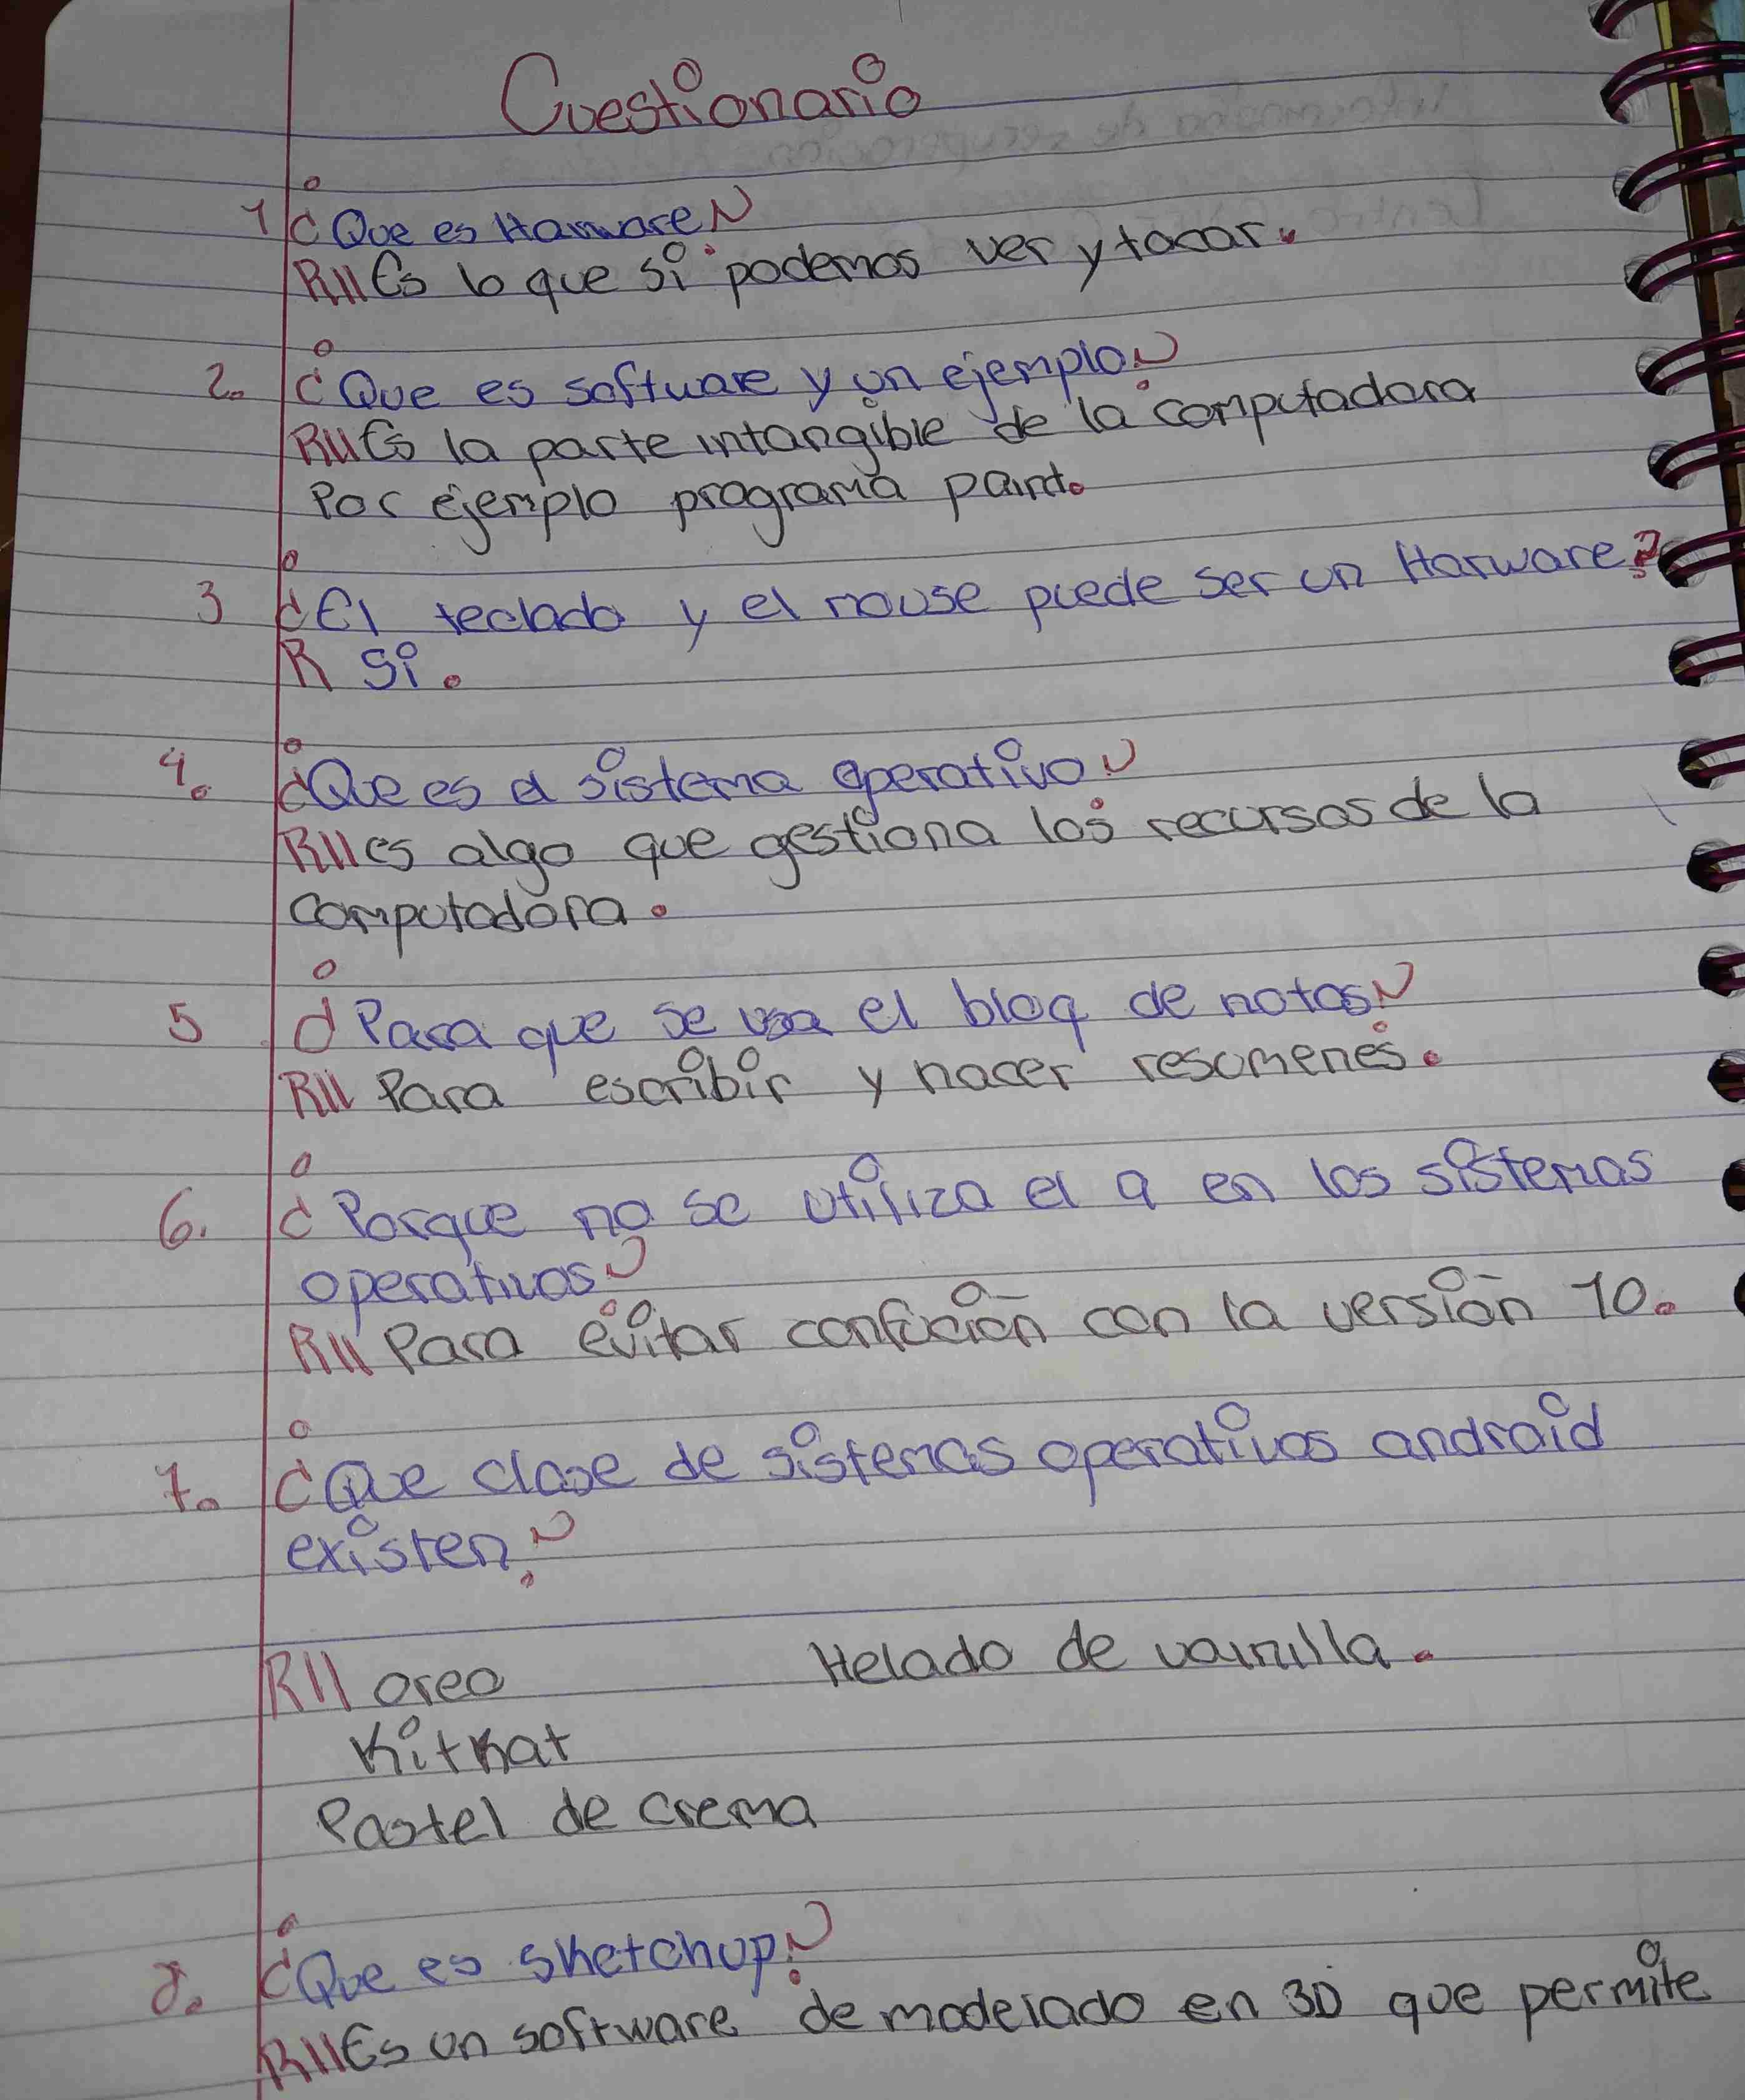 Cuestionario
1 ¿Que es Harware?
R// Es lo que si podemos ver y tocar.
2. ¿Que es software y un ejemplo?
R// Es la parte intangible de la computadora
Por ejemplo programa paint.
3 ¿El teclado y el mouse puede ser un Harware?
R Si.
4. ¿Que es el sistema operativo?
R// es algo que gestiona los recursos de la
computadora.
5 ¿Para que se usa el bloq de notas?
R// Para escribir y hacer resumenes.
6. ¿Porque no se utiliza el 9 en los sistemas
operativos?
R// Para evitar confución con la versión 10.
7. ¿Que clase de sistemas operativos android
existen?
R// oreo Helado de vainilla.
Kitkat
Pastel de crema
8. ¿Que es sketchup?
R// Es un software de modelado en 3D que permite